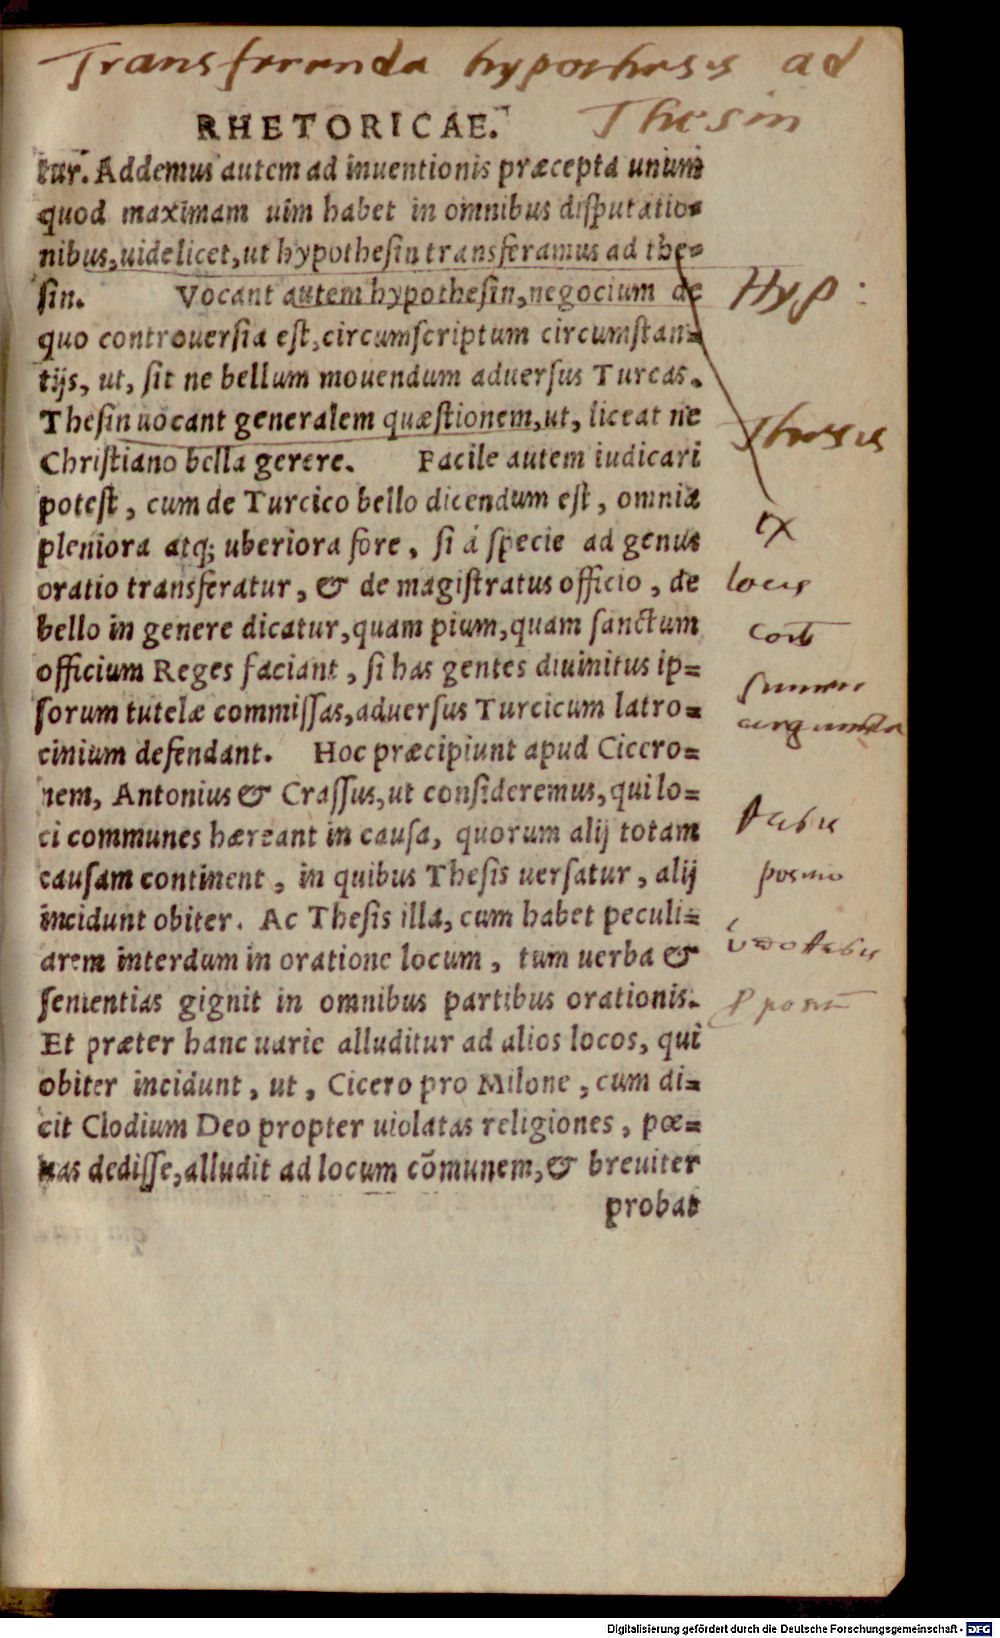 Transferenda hypothesis ad
Thesin
RHETORICAE.
tur. Addemus autem ad inuentionis præcepta unum
quod maximam uim habet in omnibus diſputatio-
nibus, uidelicet, ut hypotheſin transferamus ad the-
ſin. Vocant autem hypotheſin, negocium de
quo controuerſia eſt, circumſcriptum circumſtan-
tijs, ut, ſit ne bellum mouendum aduerſus Turcas.
Theſin uocant generalem quæſtionem, ut, liceat ne
Chriſtiano bella gerere. Facile autem iudicari
poteſt, cum de Turcico bello dicendum eſt, omnia
pleniora atq; uberiora fore, ſi á ſpecie ad genus
oratio transferatur, & de magiſtratus officio, de
bello in genere dicatur, quam pium, quam ſanctum
officium Reges faciant, ſi has gentes diuinitus ip-
ſorum tutelæ commiſſas, aduerſus Turcicum latro-
cinium defendant. Hoc præcipiunt apud Cicero-
nem, Antonius & Craſſus, ut conſideremus, qui lo-
ci communes hæreant in cauſa, quorum alij totam
cauſam continent, in quibus Theſis uerſatur, alij
incidunt obiter. Ac Theſis illa, cum habet peculi-
arem interdum in oratione locum, tum uerba &
ſententias gignit in omnibus partibus orationis.
Et præter hanc uarie alluditur ad alios locos, qui
obiter incidunt, ut, Cicero pro Milone, cum di-
cit Clodium Deo propter uiolatas religiones, pœ-
nas dediſſe, alludit ad locum cõmunem, & breuiter
probat
Hyp:
Thesis
ex
locis
Digitalisierung gefördert durch die Deutsche Forschungsgemeinschaft - DFG